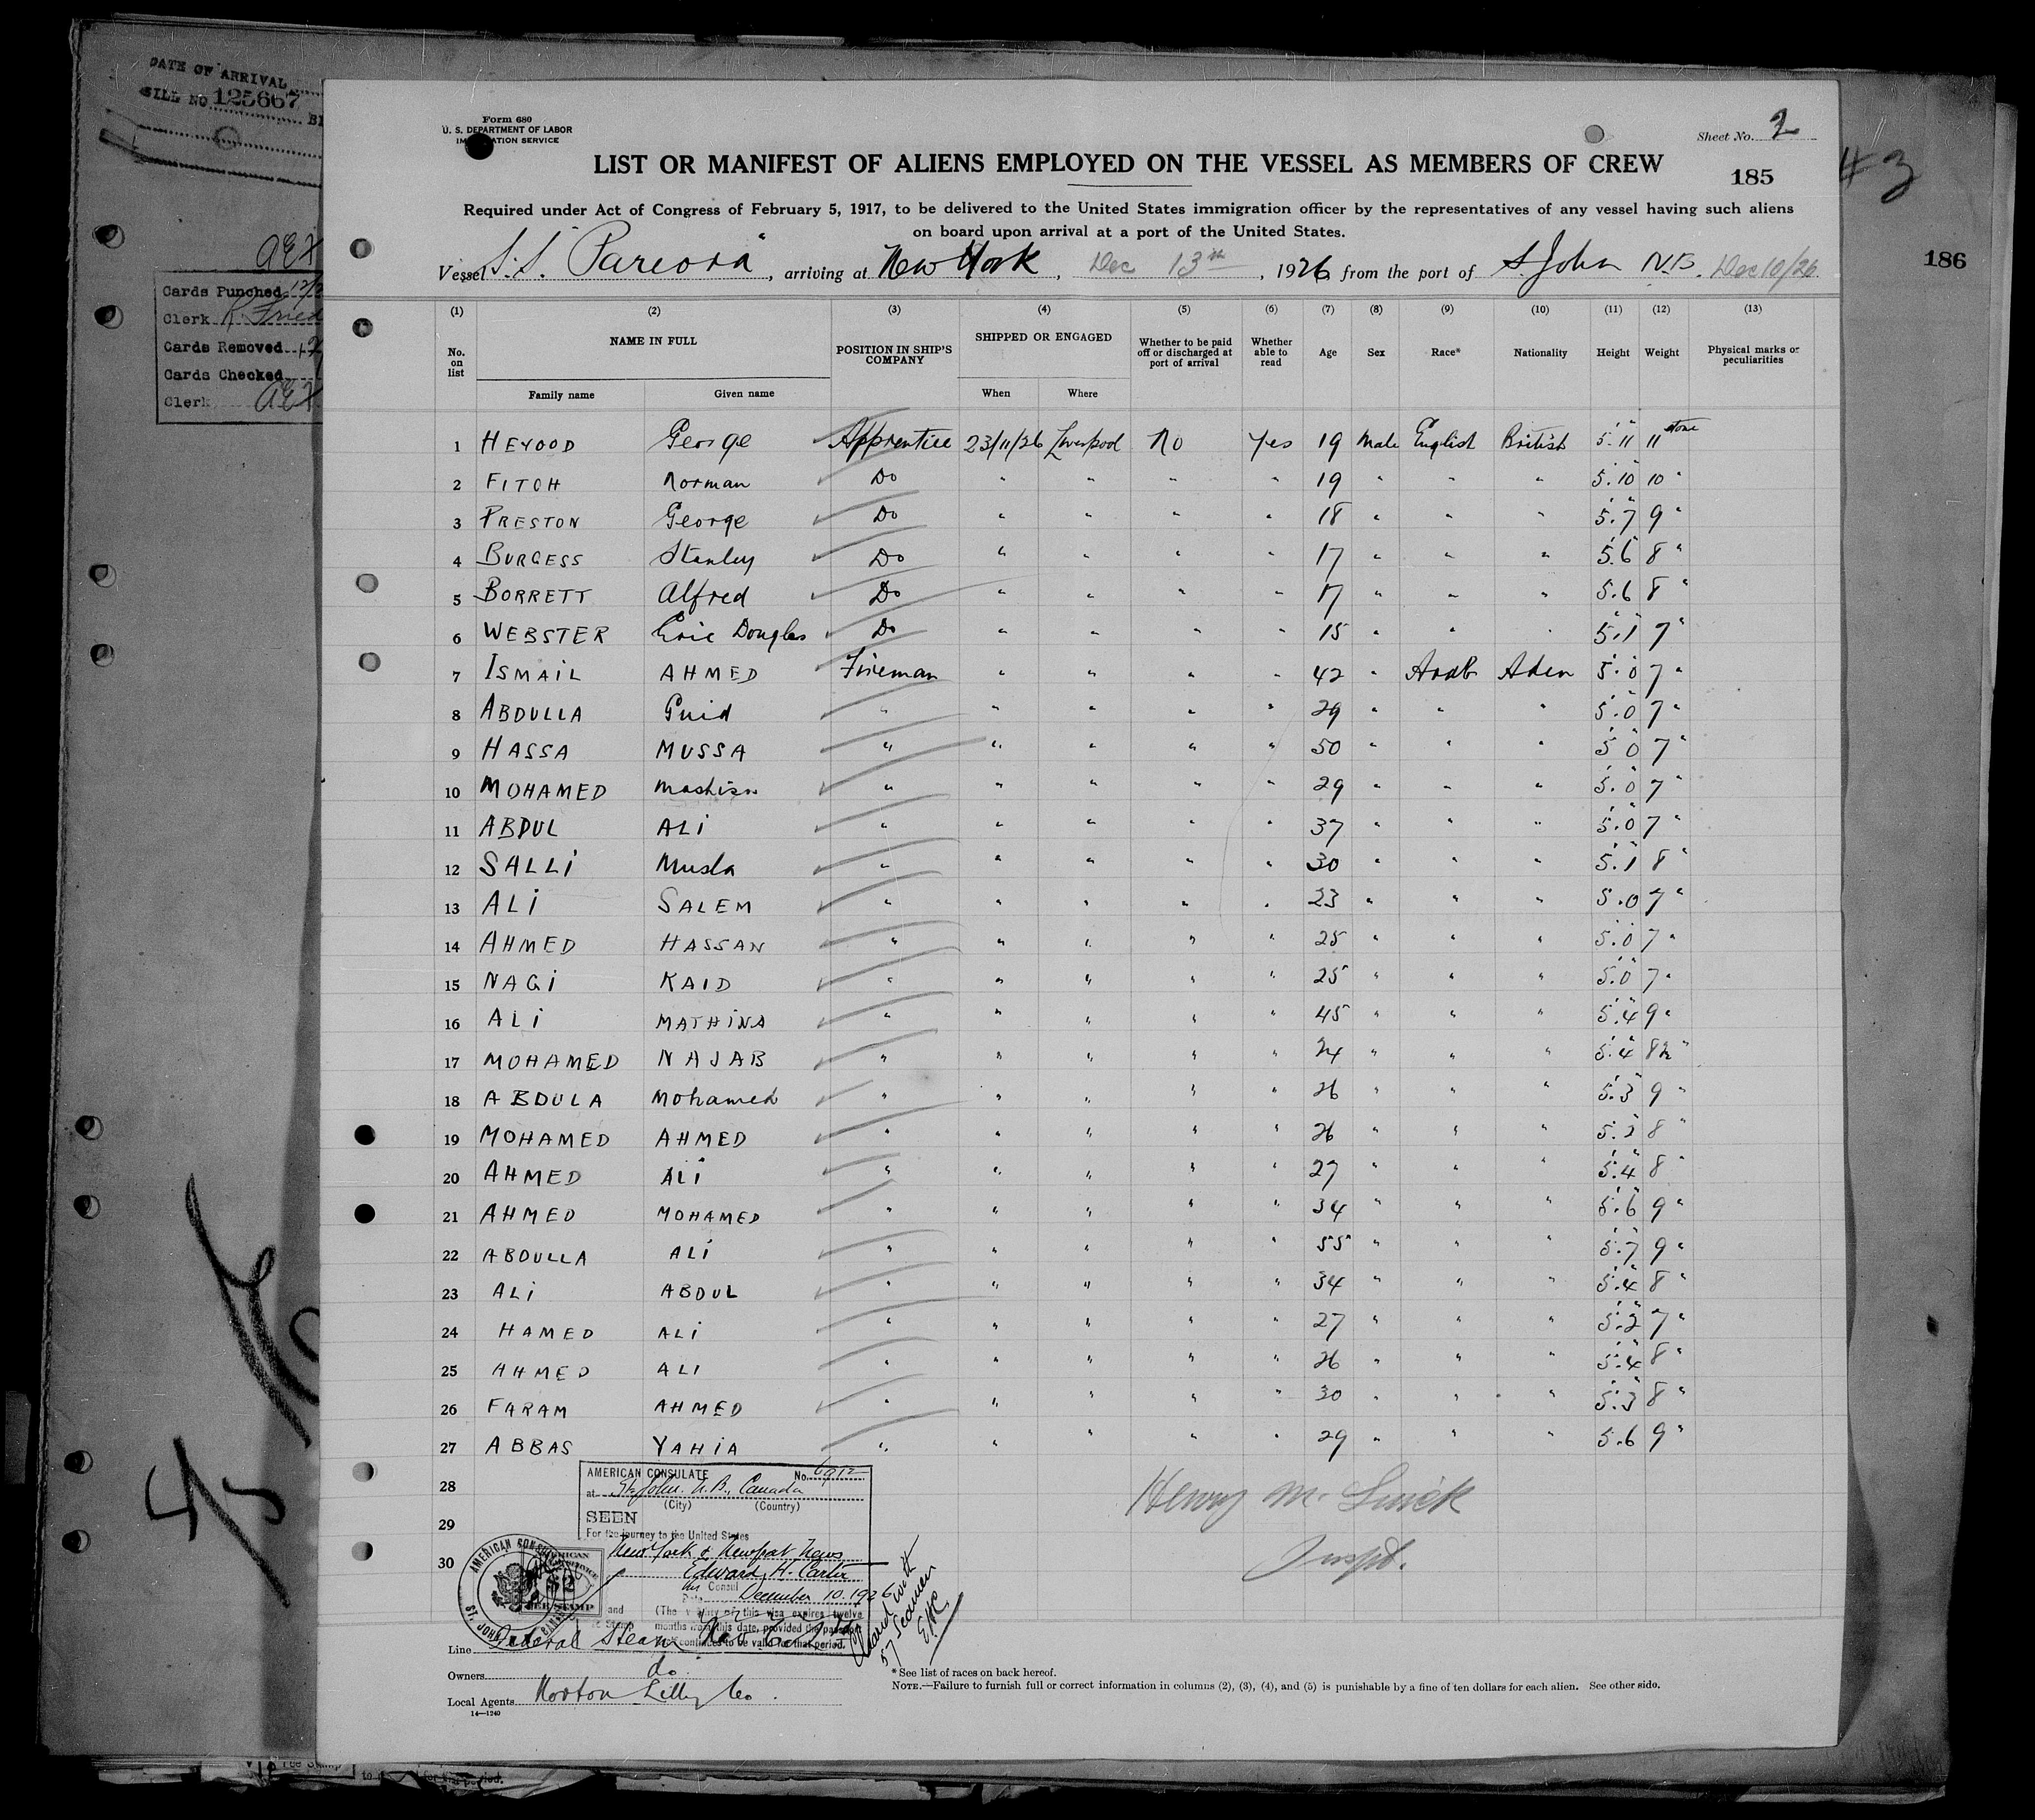 DATE OF ARRIVAL
BILL NO. 125667
Cards Punched 12/
Clerk K. Fried
Cards Removed 12
Cards Checked
Clerk AEX
Form 680
U. S. DEPARTMENT OF LABOR
IMMIGRATION SERVICE
Sheet No. 2
LIST OR MANIFEST OF ALIENS EMPLOYED ON THE VESSEL AS MEMBERS OF CREW
185
# 3
186
Required under Act of Congress of February 5, 1917, to be delivered to the United States immigration officer by the representatives of any vessel having such aliens
on board upon arrival at a port of the United States.
Vessel S.S. "Pareora", arriving at New York, Dec 13th, 1926 from the port of St John N.B. Dec 10/26
(1) (2) (3) (4) (5) (6) (7) (8) (9) (10) (11) (12) (13)
No. on list NAME IN FULL POSITION IN SHIP'S COMPANY SHIPPED OR ENGAGED Whether to be paid off or discharged at port of arrival Whether able to read Age Sex Race* Nationality Height Weight Physical marks or peculiarities
Family name Given name When Where
1 HEYOOD George Apprentice 23/11/26 Liverpool No Yes 19 Male English British 5' 11" 11 stone
2 FITCH Norman Do " " " " 19 " " " 5' 10" 10 "
3 PRESTON George Do " " " " 18 " " " 5' 7" 9 "
4 BURGESS Stanley Do " " " " 17 " " " 5' 6" 8 "
5 BORRETT Alfred Do " " " " 17 " " " 5' 6" 8 "
6 WEBSTER Eric Douglas Do " " " " 15 " " " 5' 1" 7 "
7 ISMAIL AHMED Fireman " " " " 42 " Arab Aden 5' 0" 7 "
8 ABDULLA Guid " " " " " 29 " " " 5' 0" 7 "
9 HASSA MUSSA " " " " " 50 " " " 5' 0" 7 "
10 MOHAMED " " " " " 29 " " " 5' 0" 7 "
11 ABDUL ALI " " " " " 37 " " " 5' 0" 7 "
12 SALLI Musla " " " " " 30 " " " 5' 1" 8 "
13 ALI SALEM " " " " " 23 " " " 5' 0" 7 "
14 AHMED HASSAN " " " " " 25 " " " 5' 0" 7 "
15 NAGI KAID " " " " " 25 " " " 5' 0" 7 "
16 ALI MATHINA " " " " " 45 " " " 5' 4" 9 "
17 MOHAMED NAJAB " " " " " 24 " " " 5' 4" 8½ "
18 ABDULA Mohamed " " " " " 26 " " " 5' 3" 9 "
19 MOHAMED AHMED " " " " " 26 " " " 5' 2" 8 "
20 AHMED ALI " " " " " 27 " " " 5' 4" 8 "
21 AHMED MOHAMED " " " " " 34 " " " 5' 6" 9 "
22 ABDULLA ALI " " " " " 55 " " " 5' 7" 9 "
23 ALI ABDUL " " " " " 34 " " " 5' 4" 8 "
24 HAMED ALI " " " " " 27 " " " 5' 2" 7 "
25 AHMED ALI " " " " " 26 " " " 5' 4" 8 "
26 FARAM AHMED " " " " " 30 " " " 5' 3" 8 "
27 ABBAS YAHIA " " " " " 29 " " " 5' 6" 9 "
28
29
30
AMERICAN CONSULATE No. 6912
at St. John. N.B., Canada
(City) (Country)
SEEN
For the journey to the United States
New York & Newport News
Edward H. Carter
Consul
Date December 10. 1926
(The validity of this visa expires twelve
months from this date, provided the passport
continues to be valid for that period.
AMERICAN CONSUL ST. JOHN
Visaed with
57 Seamen
EHC
Henry M.
Inspt.
Line Federal Steam Nav. Co Ltd
Owners do.
Local Agents Norton Lilly Co.
14—1240
*See list of races on back hereof.
NOTE.—Failure to furnish full or correct information in columns (2), (3), (4), and (5) is punishable by a fine of ten dollars for each alien. See other side.